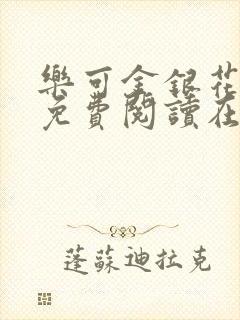 樂可金銀花
免費閱讀在
蓬蘇迪拉克